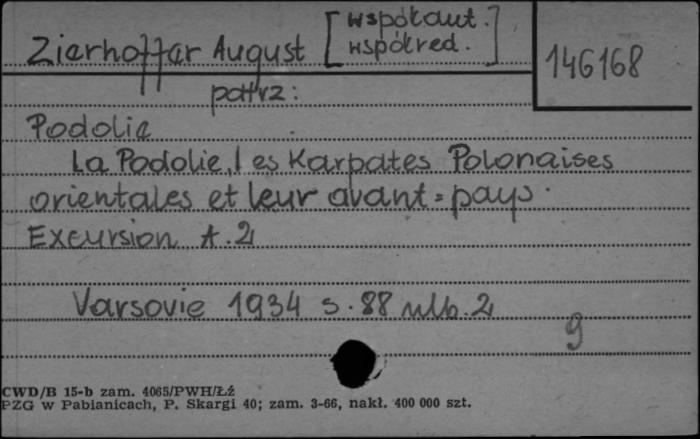 Zierhoffer August [współaut.
współred.]
146168
patrz:
Podolie
La Podolie, les Karpates Polonaises
orientales et leur avant=pays.
Excursion A.2
Varsovie 1934 s.88 nlb.2
9
CWD/B 15-b zam. 4065/PWH/Łź
PZG w Pabianicach, P. Skargi 40; zam. 3-66, nakł. 400 000 szt.